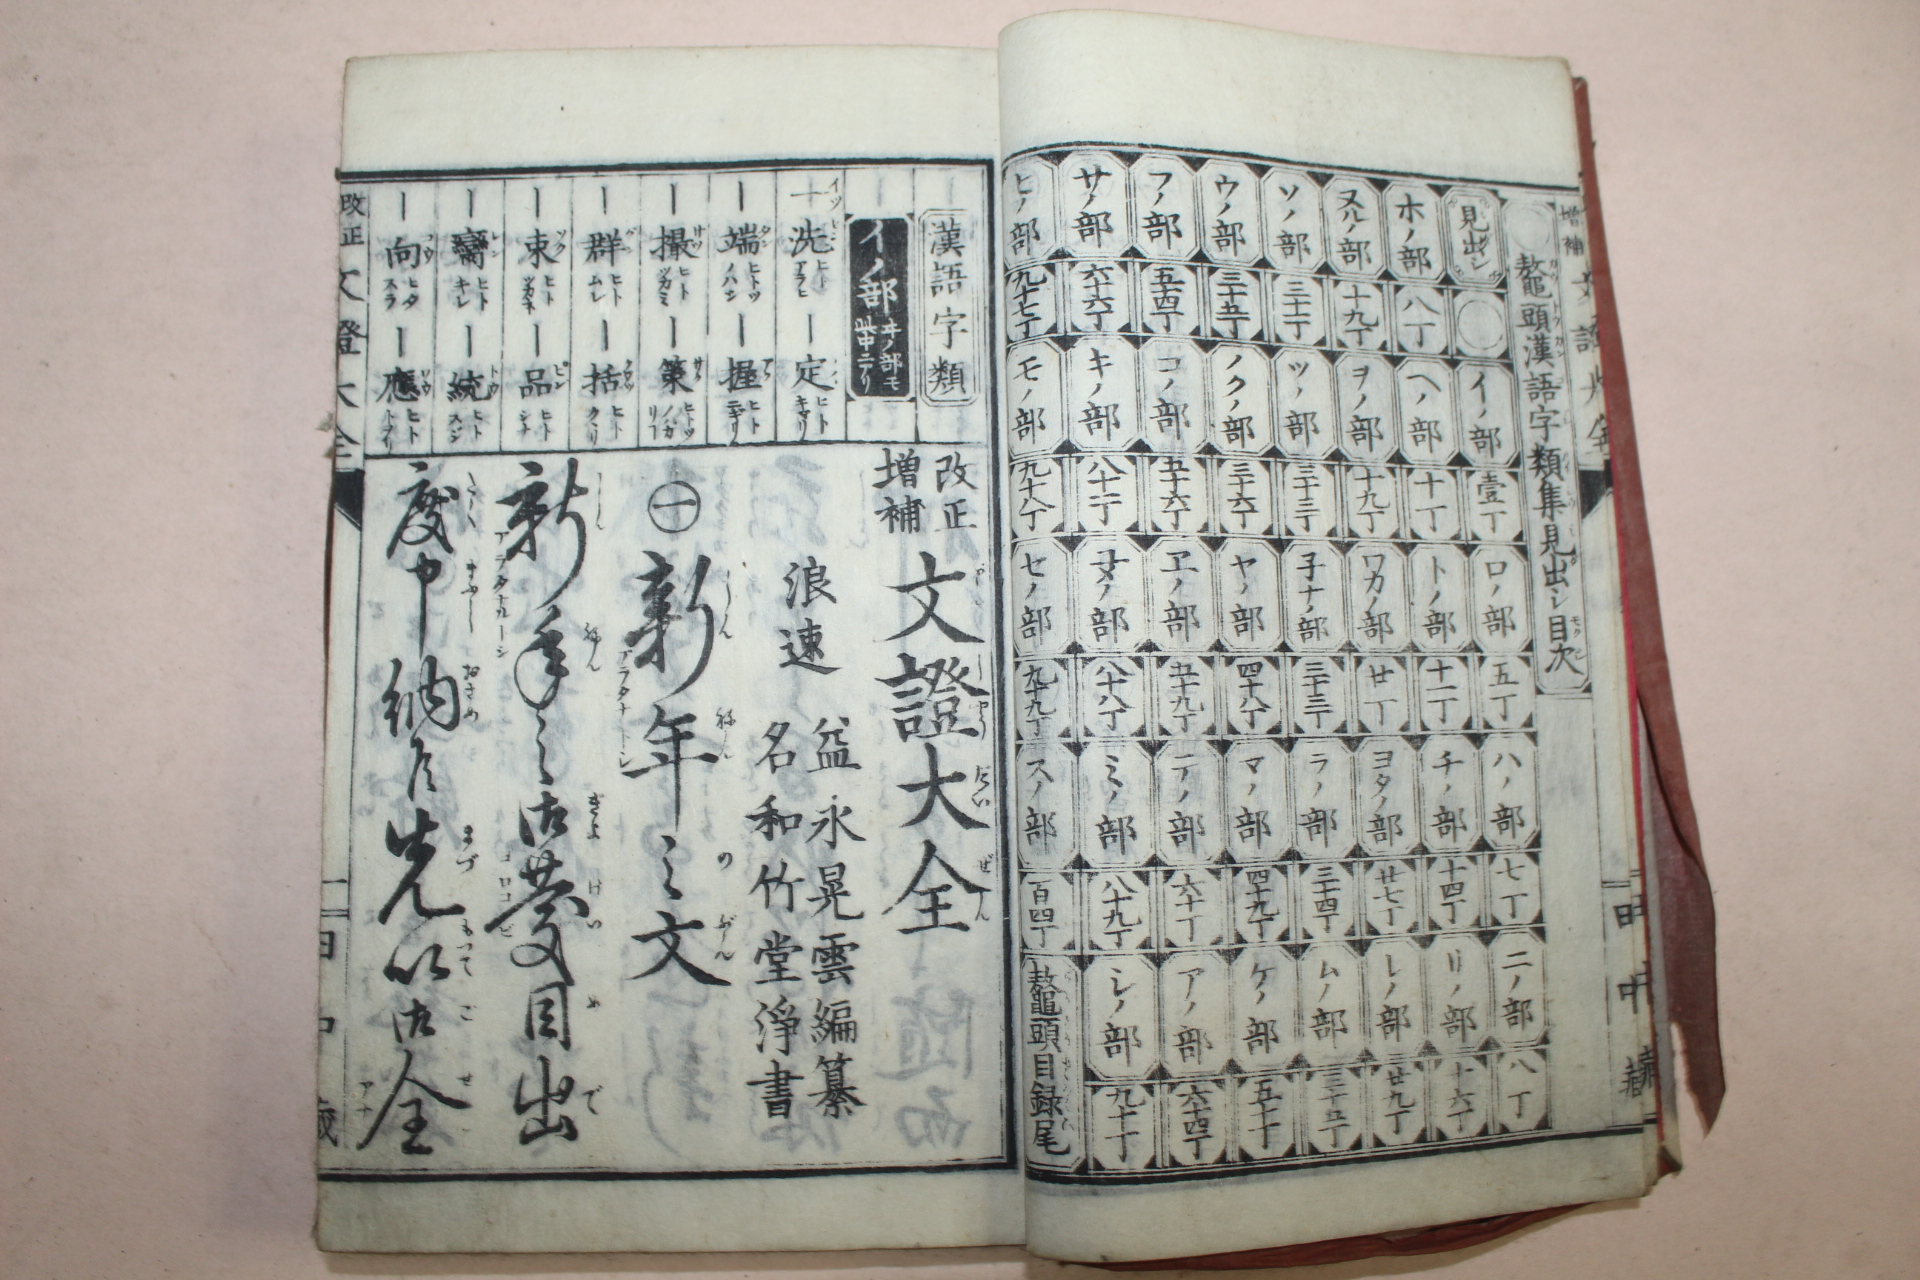 増補
文證大全
鼇頭漢語字類集見出シ目次
見出シ
イノ部
壹丁
ロノ部
五丁
ハノ部
七丁
ニノ部
八丁
ホノ部
八丁
ヘノ部
十丁
トノ部
十一丁
チノ部
十四丁
リノ部
十六丁
ヌルノ部
十九丁
ヲノ部
十九丁
ワカノ部
廿一丁
ヨタノ部
廿七丁
レノ部
廿九丁
ソノ部
三十丁
ツノ部
三十三丁
子ナノ部
三十三丁
ラノ部
三十四丁
ムノ部
三十五丁
ウノ部
三十五丁
ノクノ部
三十六丁
ヤノ部
四十八丁
マノ部
四十九丁
ケノ部
五十丁
フノ部
五十四丁
コノ部
五十六丁
エノ部
五十九丁
テノ部
六十丁
アノ部
六十四丁
サノ部
六十六丁
キノ部
八十二丁
ユメノ部
八十八丁
ミノ部
八十九丁
シノ部
九十丁
ヒノ部
九十七丁
モノ部
九十八丁
セノ部
九十九丁
スノ部
百四丁
鼇頭目録尾
田中藏
漢語字類
イノ部 ヰノ部モ此中ニアリ
一洗 ヒトアラヒ
一定 ヒトキマリ
一端 ヒトツノハシ
一握 ヒトニギリ
一撮 ヒトツカミ
一策 ヒトツノハカリ
一群 ヒトムレ
一括 ヒトククリ
一束 ヒトツカネ
一品 ヒトシナ
一臠 ヒトキレ
一統 ヒトスジ
一向 ヒタスラ
一應 ヒトトフリ
改正
増補
文證大全
浪速
益永晃雲編纂
名和竹堂淨書
㊀新年之文
新年之御慶目出
度申納候先以御全
改正文證大全
一
田中藏